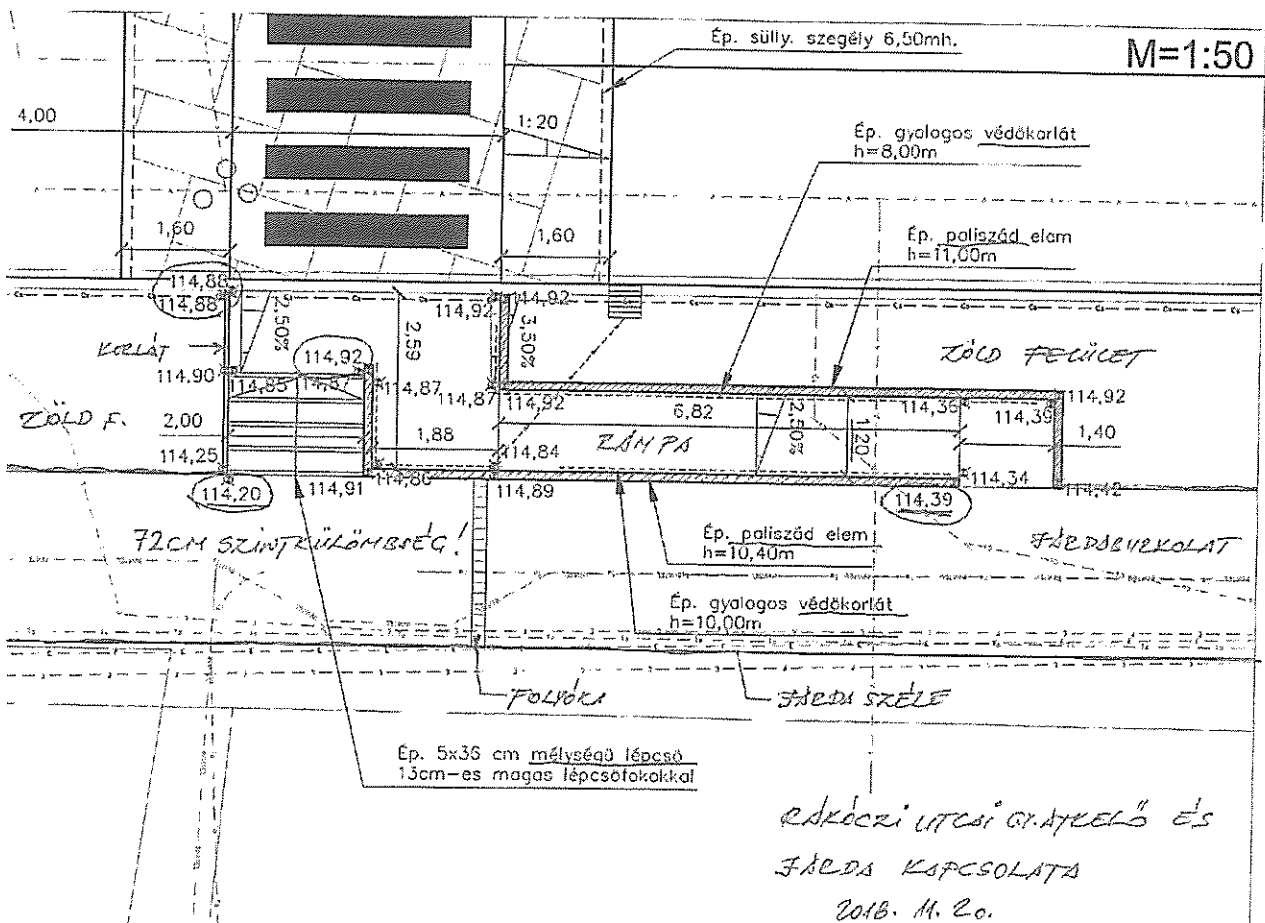 Ép. sülly. szegély 6,50mh.
M=1:50
4,00
1:20
Ép. gyalogos védőkorlát
h=8,00m
1,60
1,60
Ép. paliszád elem
h=11,00m
114,88
114,88
2,50%
2,59
114,92
114,92
3,50%
KORLÁT
114,92
ZÖLD FELÜLET
114,90
114,85
114,87
114,87
114,87
114,92
6,82
2,50%
114,36
114,39
114,92
ZÖLD F.
2,00
1,88
RÁMPA
1,20
1,40
114,25
114,84
114,34
114,20
114,91
114,86
114,89
114,39
114,42
72CM SZINTKÜLÖMBSÉG!
Ép. paliszád elem
h=10,40m
JÁRDABURKOLAT
Ép. gyalogos védőkorlát
h=10,00m
FOLYÓKA
JÁRDA SZÉLE
Ép. 5x36 cm mélységű lépcső
13cm-es magas lépcsőfokokkal
RÁKÓCZI UTCAI GY.ÁTKELŐ ÉS
JÁRDA KAPCSOLATA
2018. 11. 20.